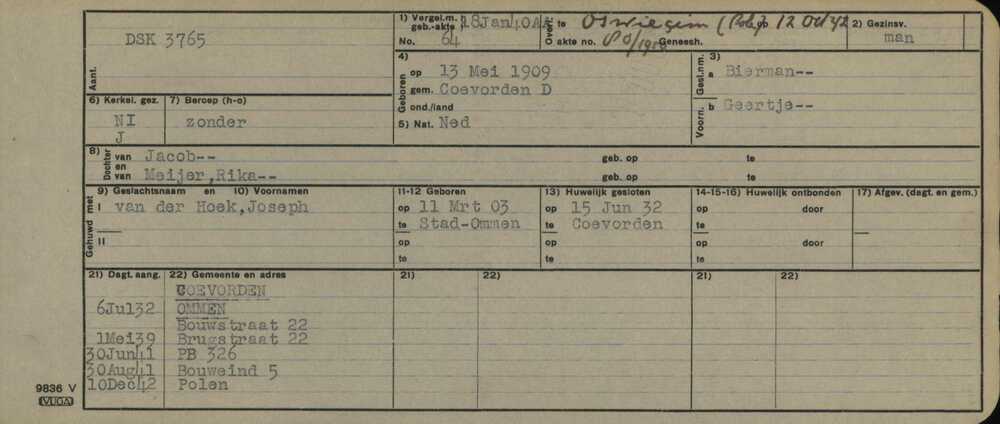 DSK 3765
Aant.
1) Vergel.m. geb.-akte 18Jan40A
No. 64
Overl. te Oswiegem (Pole) op 12 Oct 42
akte no. Geneesh.
2) Gezinsv.
man
4)
Geboren
op 13 Mei 1909
gem. Coevorden D
ond./land
5) Nat. Ned
3)
Gesl.nm. a Bierman--
Voorn. b Geertje--
6) Kerkel. gez.
NI
J
7) Beroep (h-o)
zonder
8)
Dochter van Jacob-- geb. op te
en
van Meijer,Rika-- geb. op te
Gehuwd met
9) Geslachtsnaam en 10) Voornamen
I van der Hoek,Joseph
II
11-12 Geboren
op 11 Mrt 03
te Stad-Ommen
op
te
13) Huwelijk gesloten
op 15 Jun 32
te Coevorden
op
te
14-15-16) Huwelijk ontbonden
op door
te
op door
te
17) Afgev. (dagt. en gem.)
21) Dagt. aang. 22) Gemeente en adres 21) 22) 21) 22)
COEVORDEN
6Jul32 OMMEN
Bouwstraat 22
1Mei39 Brugstraat 22
30Jun41 PB 326
30Aug41 Bouweind 5
10Dec42 Polen
9836 V
VUGA